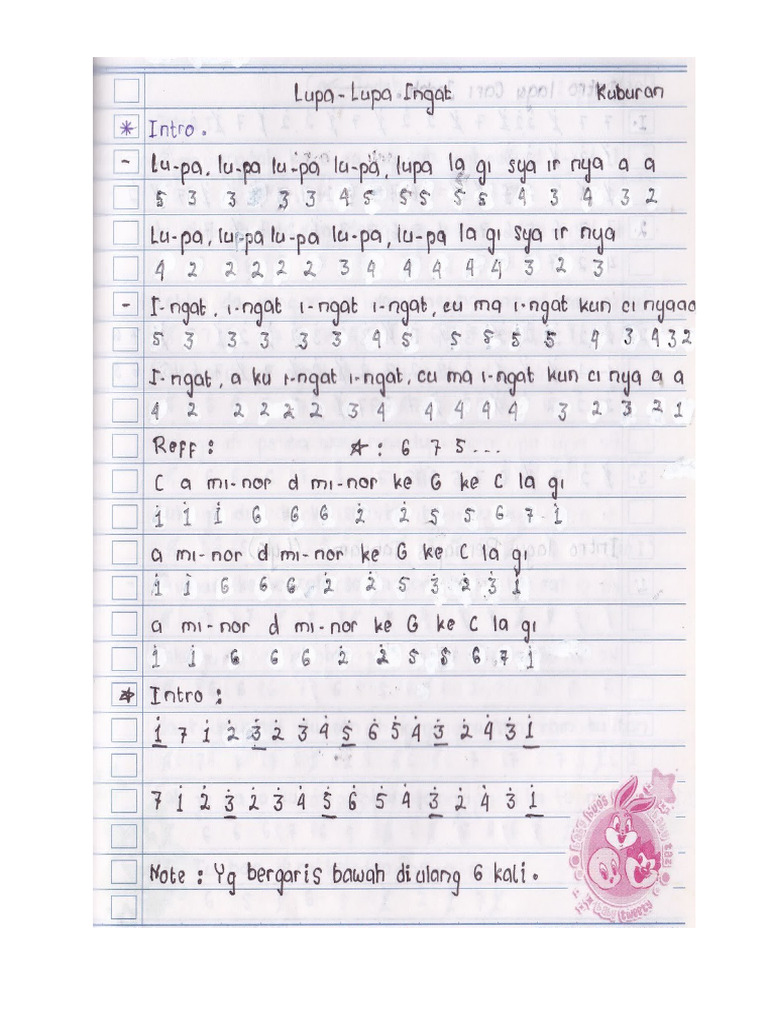 Lupa-Lupa-Ingat Kuburan
* Intro.
- Lu-pa, lu-pa lu-pa lu-pa, lupa la gi sya ir nya a a
5 3 3 3 3 3 4 5 5 5 5 5 4 3 4 3 2
Lu-pa, lu-pa lu-pa lu-pa, lu-pa la gi sya ir nya
4 2 2 2 2 2 3 4 4 4 4 4 4 3 2 3
- I-ngat, i-ngat i-ngat i-ngat, cu ma i-ngat kun ci nyaaa
5 3 3 3 3 3 4 5 5 5 5 5 4 3 4 3 2
I-ngat, a ku i-ngat i-ngat, cu ma i-ngat kun ci nya a a
4 2 2 2 2 2 3 4 4 4 4 4 3 2 3 2 1
Reff : ☆ : 6 7 5 ...
C a mi-nor d mi-nor ke G ke C la gi
1̇ 1̇ 1̇ 6 6 6 2̇ 2̇ 5 5 6 7 1̇
a mi-nor d mi-nor ke G ke C la gi
1̇ 1̇ 6 6 6 2̇ 2̇ 5 3̇ 2̇ 3̇ 1̇
a mi-nor d mi-nor ke G ke C la gi
1̇ 1̇ 6 6 6 2̇ 2̇ 5 5 6 7 1̇
☆ Intro :
1̇ 7 1̇ 2̇ 3̇ 2̇ 3̇ 4̇ 5̇ 6̇ 5̇ 4̇ 3̇ 2̇ 4̇ 3̇ 1̇
7 1̇ 2̇ 3̇ 2̇ 3̇ 4̇ 5̇ 6̇ 5̇ 4̇ 3̇ 2̇ 4̇ 3̇ 1̇
Note : Yg bergaris bawah diulang 6 kali.
baby tweety